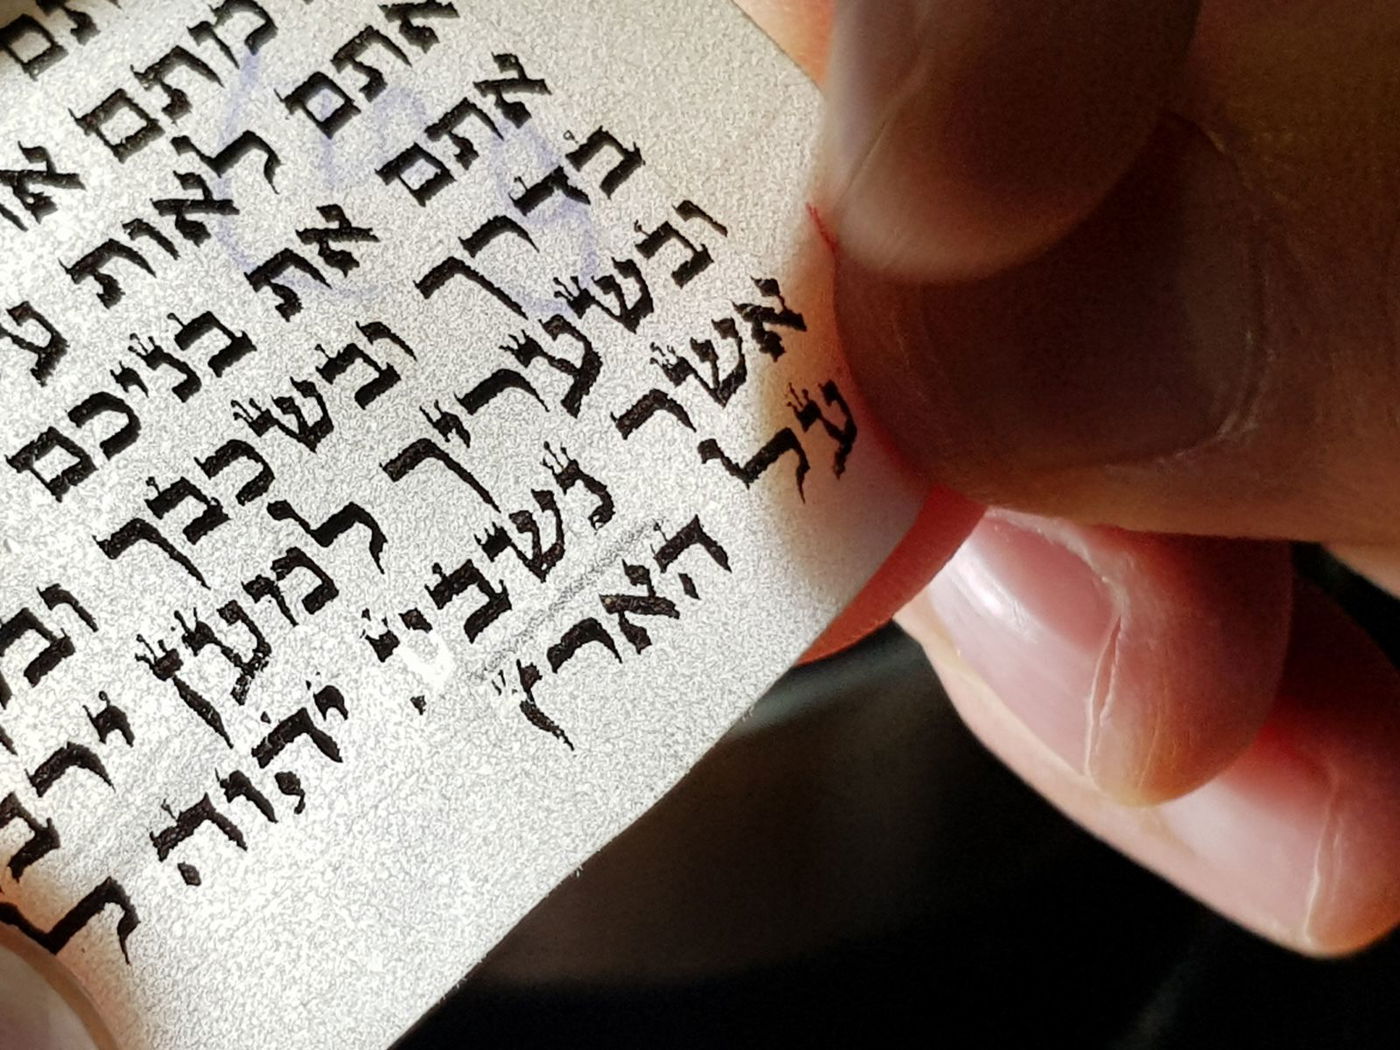 תם
מתם א
אתם לאות ע
אתם את בניכם
בדרך ובשכבך וב
ובשעריך למען ירב
אשר נשבע יהוה ל
על הארץ